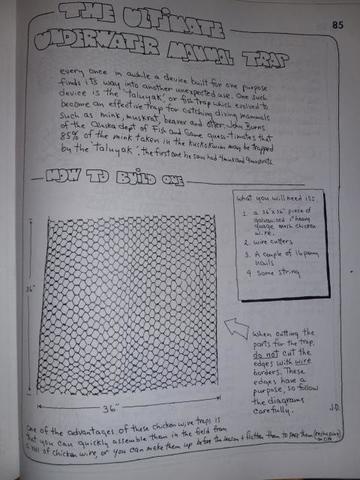 THE ULTIMATE
85
UNDERWATER MAMMAL TRAP
every once in awhile a device built for one purpose
finds its way into another unexpected use. One such
device is the "taluyak", or fish trap which evolved to
become an effective trap for catching diving mammals
such as mink, muskrat, beaver and otter. John Burns
of the Alaska dept of Fish and Game guess-timates that
85% of the mink taken in the Kuskokwim may be trapped
by the "taluyak", the first one he saw had 4 mink and 9 muskrats
HOW TO BUILD ONE
what you will need is:
1. a 36"x36" piece of
galvanised 1" heavy
guage mesh chicken
wire.
2. wire cutters
3. A couple of 16 penny
nails
4. Some string
36"
When cutting the
parts for the trap,
do not cut the
edges with wire
borders. These
edges have a
purpose, so follow
the diagrams
carefully.
36"
J.D.
one of the advantages of these chicken wire traps is
that you can quickly assemble them in the field from
a roll of chicken wire, or you can make them up before the season & flatten them to store them